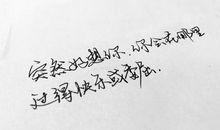 突然好想你,你会在哪里
过得快乐或委屈.